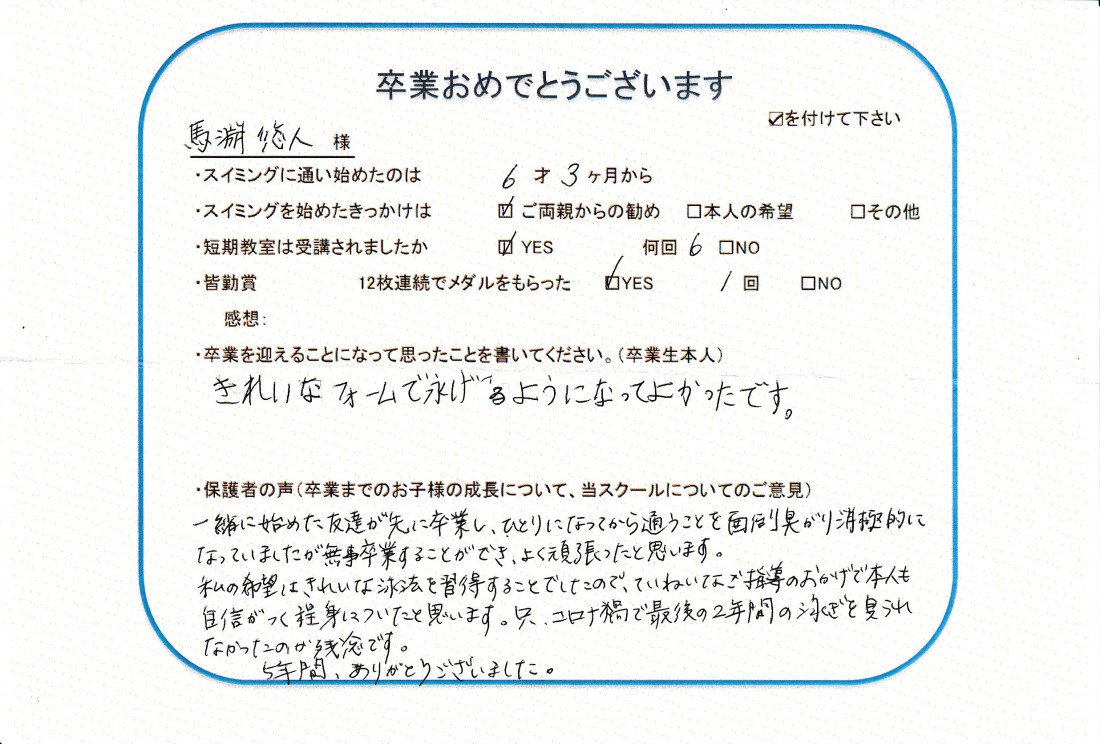 卒業おめでとうございます
☑を付けて下さい
馬渕 悠人 様
・スイミングに通い始めたのは 6 才 3 ヶ月から
・スイミングを始めたきっかけは ☑ ご両親からの勧め □本人の希望 □その他
・短期教室は受講されましたか ☑ YES 何回 6 □NO
・皆勤賞 12枚連続でメダルをもらった ☑YES 1 回 □NO
感想：
・卒業を迎えることになって思ったことを書いてください。（卒業生本人）
きれいなフォームで泳げるようになってよかったです。
・保護者の声（卒業までのお子様の成長について、当スクールについてのご意見）
一緒に始めた友達が先に卒業し、ひとりになってから通うことを面倒臭がり消極的に
なっていましたが無事卒業することができ、よく頑張ったと思います。
私の希望はきれいな泳法を習得することでしたので、ていねいなご指導のおかげで本人も
自信がつく程身についたと思います。只、コロナ禍で最後の2年間の泳ぎを見られ
なかったのが残念です。
5年間、ありがとうございました。